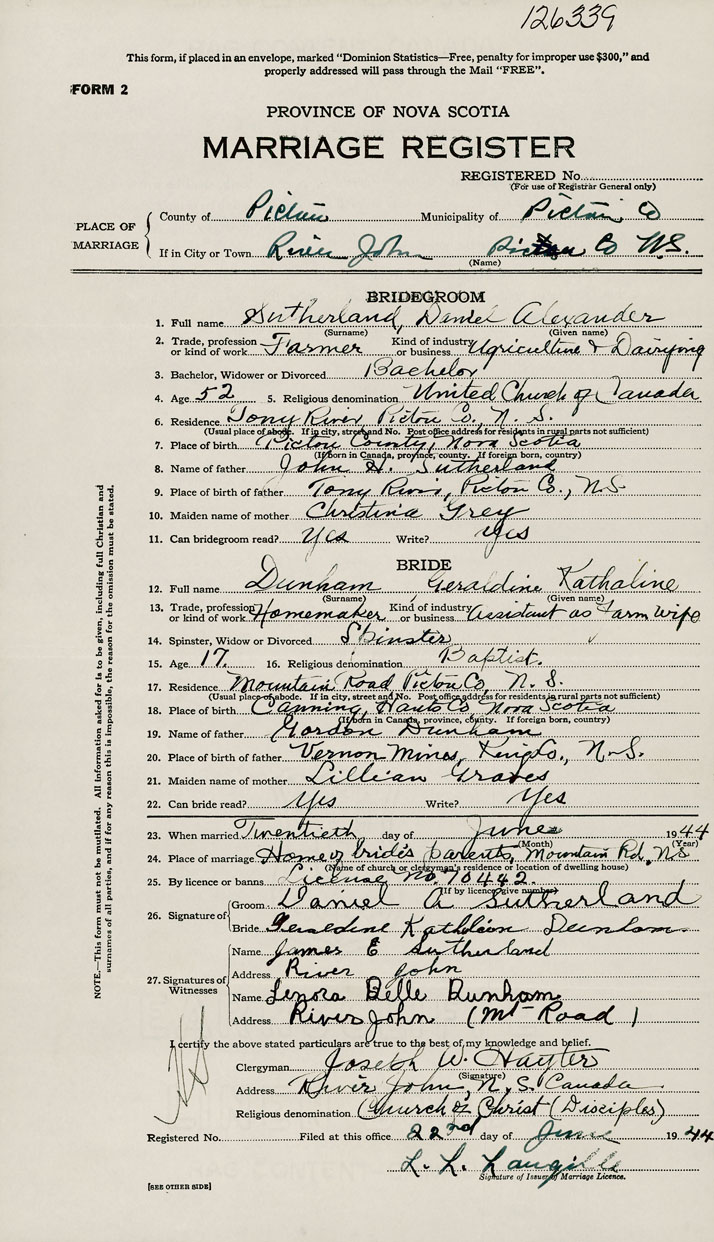 126339
This form, if placed in an envelope, marked “Dominion Statistics—Free, penalty for improper use $300,” and
properly addressed will pass through the Mail “FREE”.
FORM 2
PROVINCE OF NOVA SCOTIA
MARRIAGE REGISTER
REGISTERED No.
(For use of Registrar General only)
PLACE OF MARRIAGE
County of Pictou Municipality of Pictou Co
If in City or Town River John Pictou Co N.S.
(Name)
BRIDEGROOM
1. Full name Sutherland, Daniel Alexander
(Surname) (Given name)
2. Trade, profession or kind of work Farmer Kind of industry or business Agriculture & Dairying
3. Bachelor, Widower or Divorced Bachelor
4. Age 52 5. Religious denomination United Church of Canada
6. Residence Tony River Pictou Co, N. S.
(Usual place of abode. If in city, street and No. Post office address for residents in rural parts not sufficient)
7. Place of birth Pictou County, Nova Scotia
(If born in Canada, province, county. If foreign born, country)
8. Name of father John H. Sutherland
9. Place of birth of father Tony River, Pictou Co., N.S.
10. Maiden name of mother Christina Grey
11. Can bridegroom read? Yes Write? Yes
BRIDE
12. Full name Dunham Geraldine Kathaline
(Surname) (Given name)
13. Trade, profession or kind of work Homemaker Kind of industry or business Assistant as Farm Wife
14. Spinster, Widow or Divorced Spinster
15. Age 17. 16. Religious denomination Baptist.
17. Residence Mountain Road Pictou Co, N. S.
(Usual place of abode. If in city, street and No. Post office address for residents in rural parts not sufficient)
18. Place of birth Canning, Hants Co, Nova Scotia
(If born in Canada, province, county. If foreign born, country)
19. Name of father Gordon Dunham
20. Place of birth of father Vernon Mines, Kings Co., N-S.
21. Maiden name of mother Lillian Graves
22. Can bride read? Yes Write? Yes
23. When married Twentieth day of June 1944
(Month) (Year)
24. Place of marriage Home of bride's parents, Mountain Rd, NS
(Name of church or clergyman's residence or location of dwelling house)
25. By licence or banns License No. 10442.
(If by licence give number)
26. Signature of
Groom Daniel A Sutherland
Bride Geraldine Kathleen Dunham
27. Signatures of Witnesses
Name James E Sutherland
Address River John
Name Lenora Belle Dunham
Address River John (Mt Road)
I certify the above stated particulars are true to the best of my knowledge and belief.
Clergyman Joseph W. Hayter
(Signature)
Address River John, N. S. Canada
Religious denomination Church of Christ (Disciples)
Registered No. Filed at this office 22nd day of June 1944
L. L. Langille
Signature of Issuer of Marriage Licence.
[SEE OTHER SIDE]
NOTE.—This form must not be mutilated. All information asked for is to be given, including full Christian and
surnames of all parties, and if for any reason this is impossible, the reason for the omission must be stated.